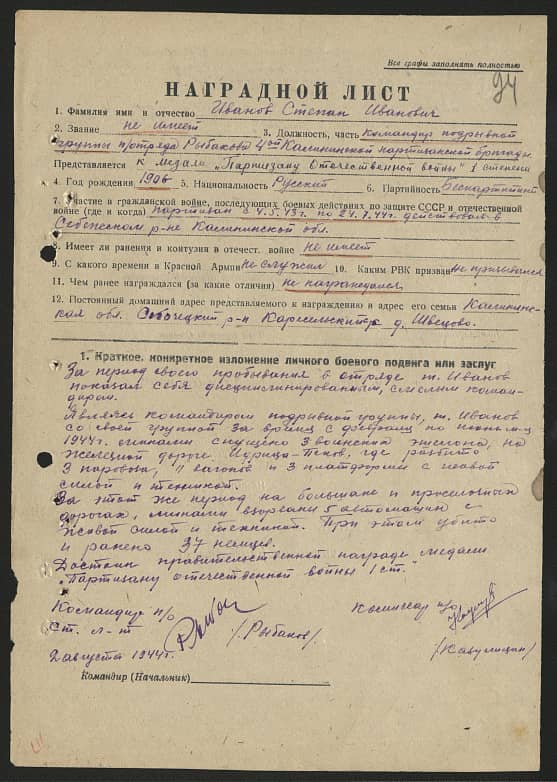 Все графы заполнять полностью
94
НАГРАДНОЙ ЛИСТ
1. Фамилия имя и отчество Иванов Степан Иванович
2. Звание не имеет 3. Должность, часть командир подрывной
группы п/отряда Рыбакова 4ой Калининской партизанской бригады
Представляется к медали „Партизану Отечественной войны" 1 степени
4. Год рождения 1906 5. Национальность Русский 6. Партийность Беспартийный
7. Участие в гражданской войне, последующих боевых действиях по защите СССР и отечественной
войне (где и когда) партизан с 4.5.43г. по 24.7.44г. действовал в
Себежском р-не Калининской обл.
8. Имеет ли ранения и контузия в отечест. войне не имеет
9. С какого времени в Красной Армии не служил 10. Каким РВК призван не призывался
11. Чем ранее награждался (за какие отличия) не награждался
12. Постоянный домашний адрес представляемого к награждению и адрес его семьи Калининс-
кая обл. р-н д. Швецово.
1. Краткое, конкретное изложение личного боевого подвига или заслуг
За период своего пребывания в отряде т. Иванов
показал себя дисциплинированным, смелым коман-
диром.
Являясь командиром подрывной группы, т. Иванов
со своей группой за время с февраля по июнь м-ц
1944г. минами спущено 3 воинских эшелона, на
железной дороге Идрица-Псков, где разбито
3 паровоза, 11 вагонов и 3 платформы с живой
силой и техникой.
За этот же период на большаке и проселочных
дорогах, минами взорвали 5 автомашин с
живой силой и техникой. При этом убито
и ранено 37 немцев.
Достоин правительственной награды медали
„Партизану отечественной войны 1 ст."
Командир п/о Комиссар п/о
Ст. л-т /Рыбаков/
2 августа 1944г.
Командир (Начальник)